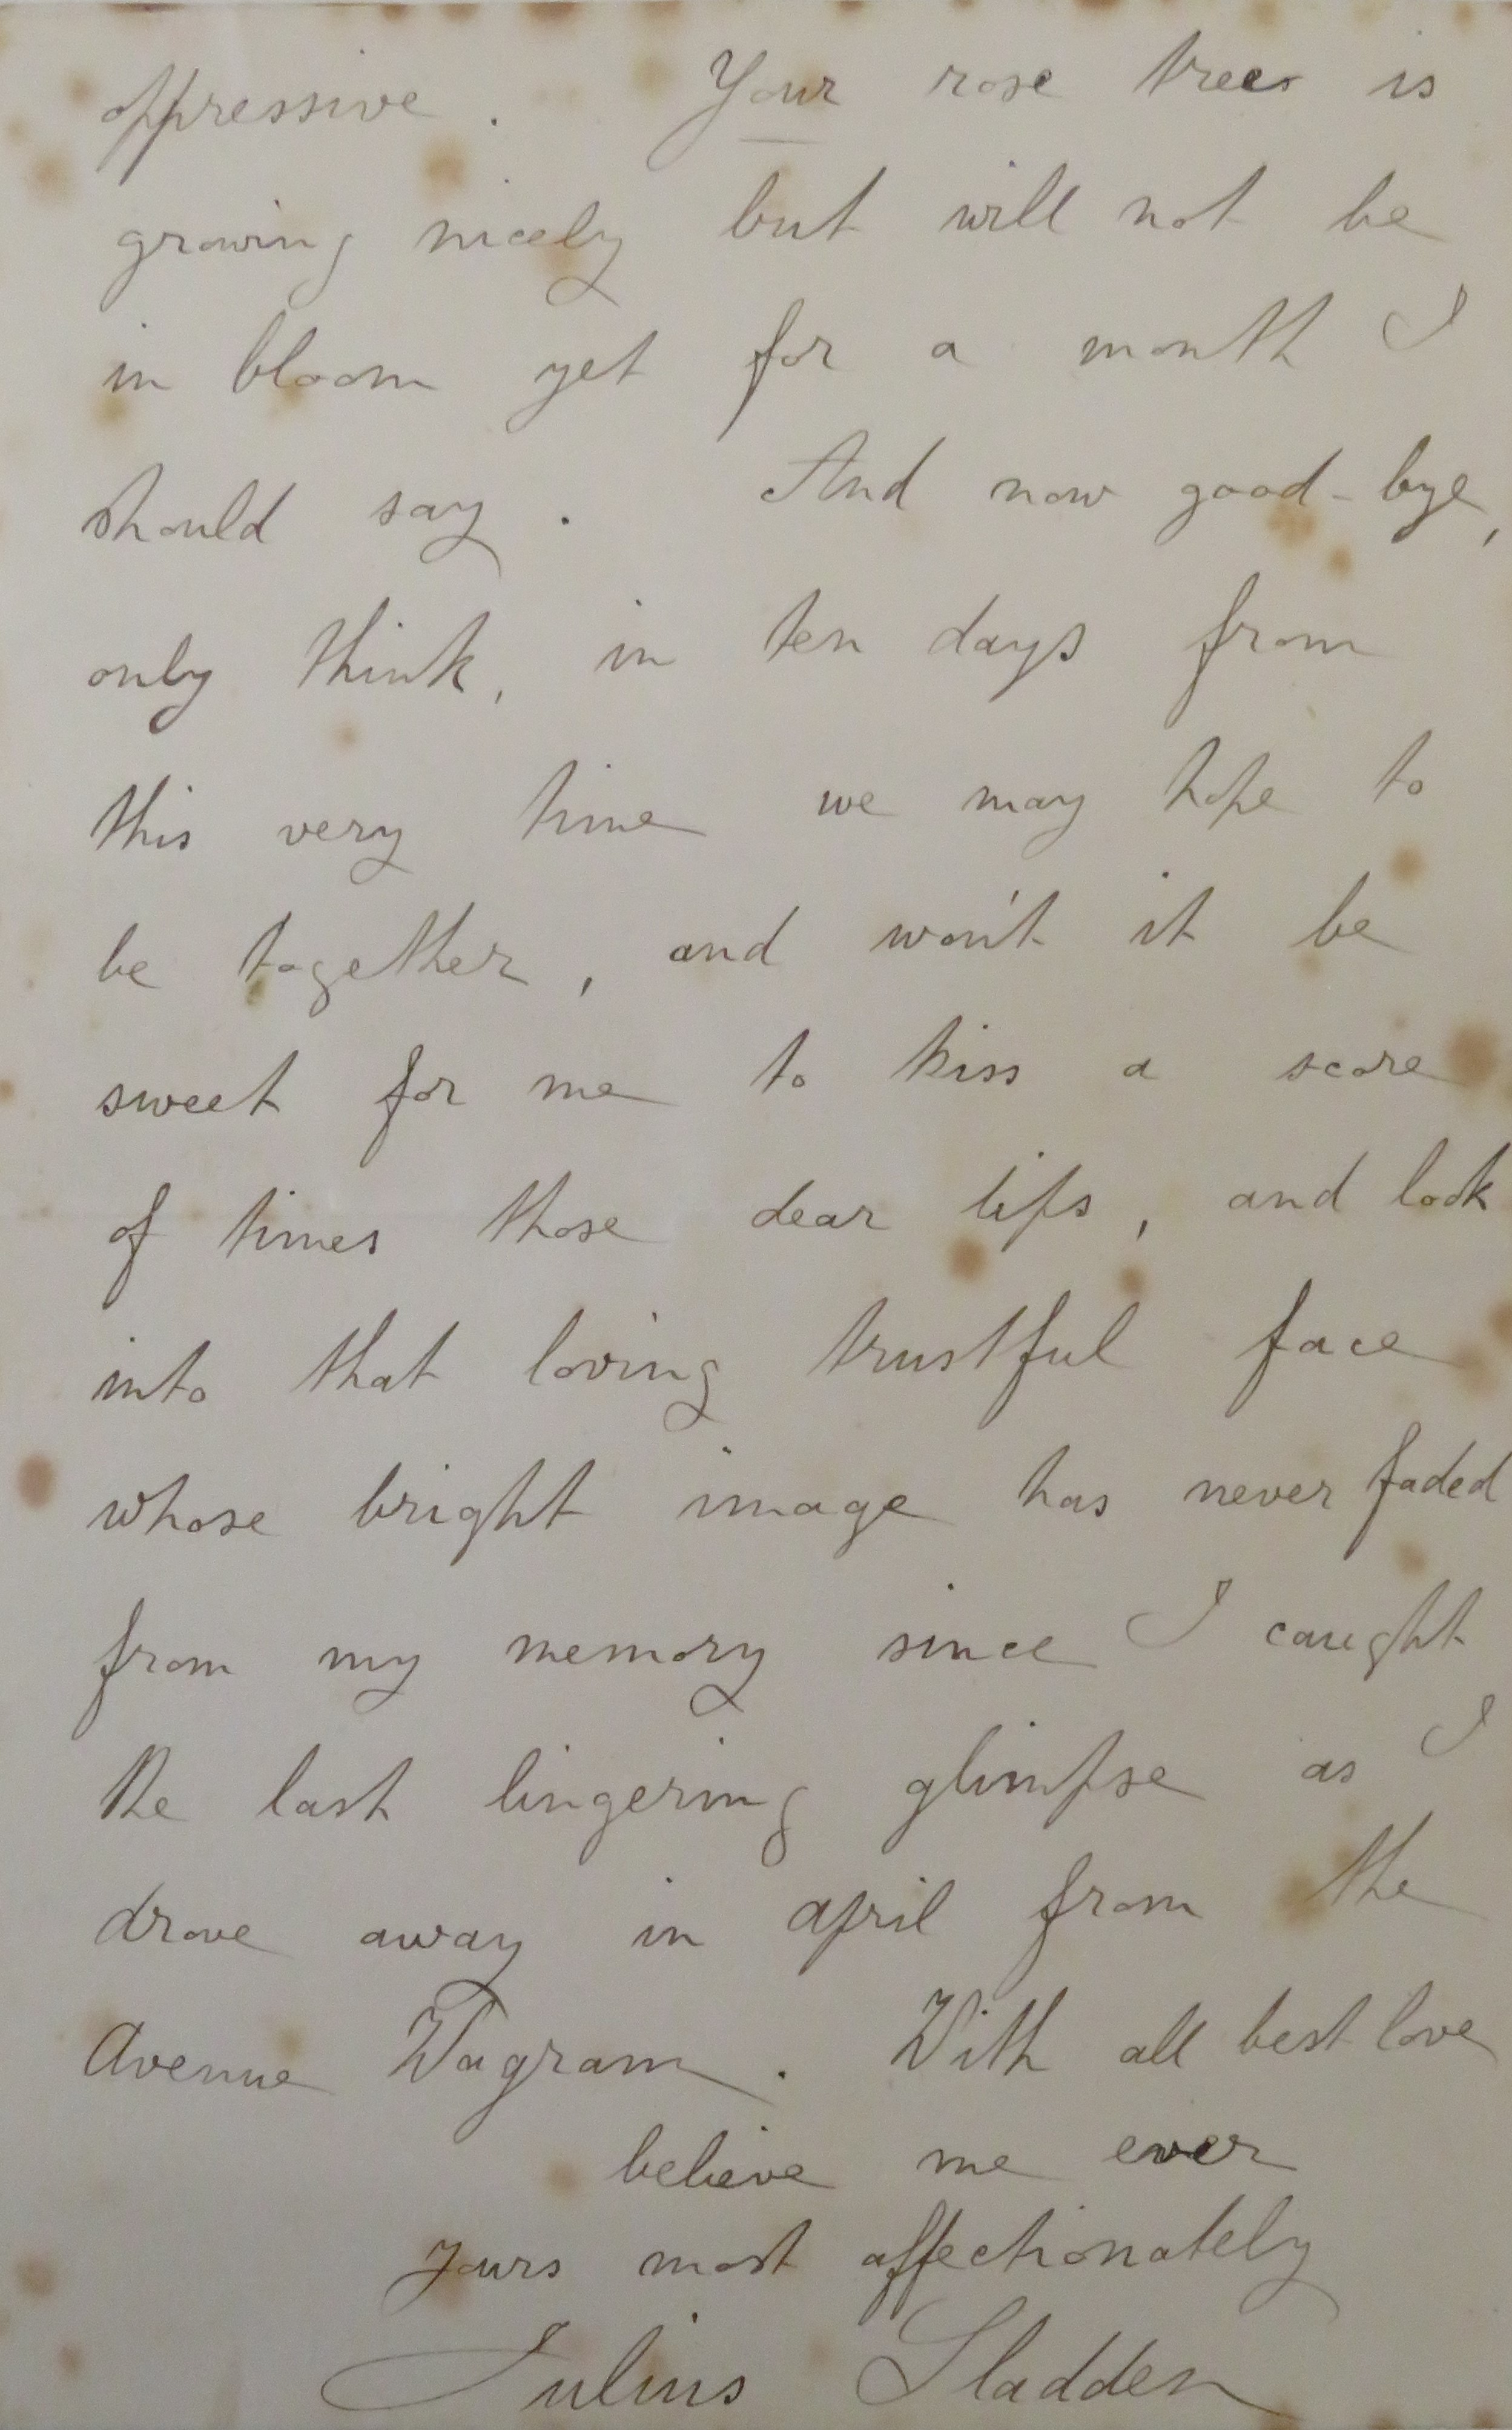 oppressive. Your rose trees is
growing nicely but will not be
in bloom yet for a month I
should say. And now good-bye,
only think, in ten days from
this very time we may hope to
be together, and won't it be
sweet for me to kiss a score
of times those dear lips, and look
into that loving trustful face
whose bright image has never faded
from my memory since I caught
the last lingering glimpse as I
drove away in april from the
Avenue Wagram. With all best love
believe me ever
yours most affectionately
Julius Sladden